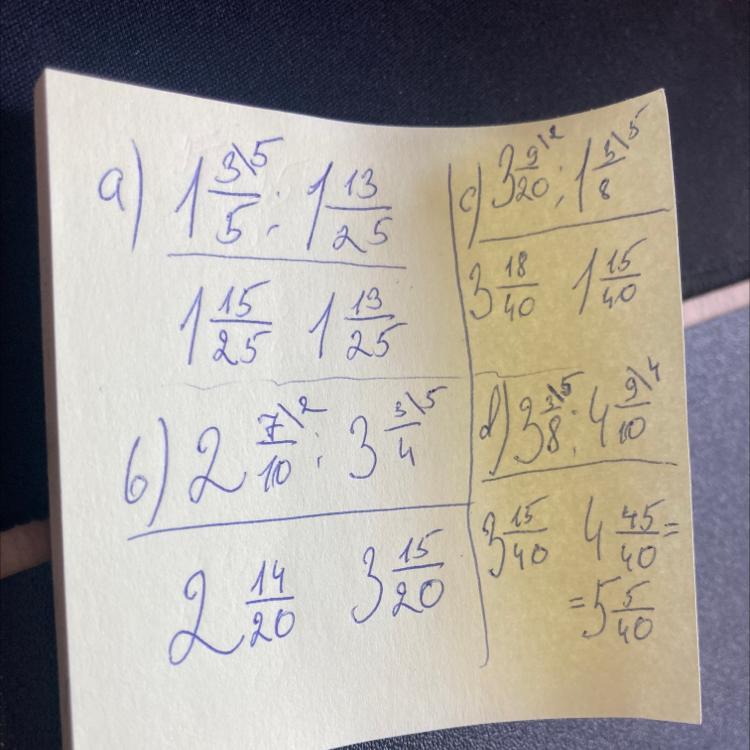 a) 1 3\5/5 ; 1 13/25
1 15/25 1 13/25
б) 2 7\2/10 ; 3 3\5/4
2 14/20 3 15/20
c) 3 9\2/20 ; 1 3\5/8
3 18/40 1 15/40
d) 3 3\5/8 ; 4 9\4/10
3 15/40 4 45/40 =
= 5 5/40